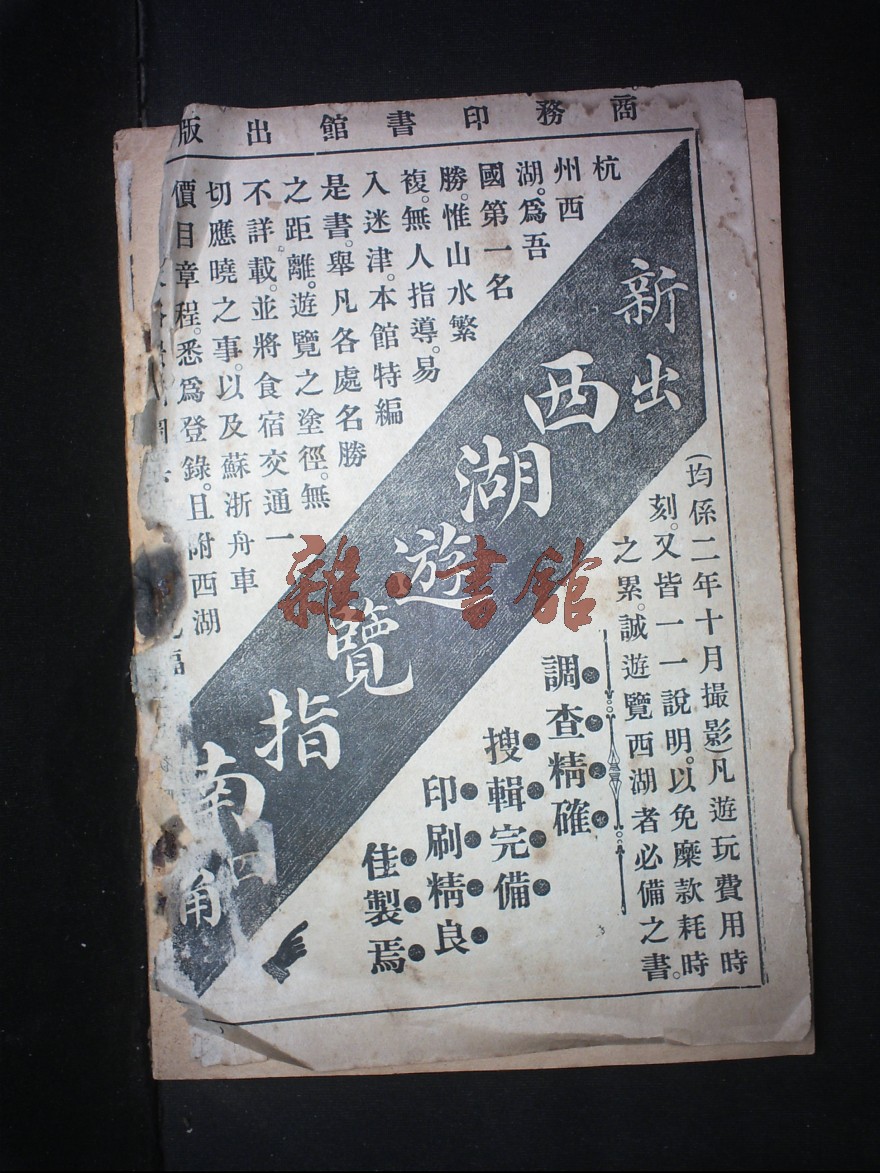 商務印書館出版
新出
西湖遊覽指南
四角
杭
州西
湖。爲吾
國第一名
勝。惟山水繁
複。無人指導。易
入迷津。本館特編
是書。舉凡各處名勝
之距離。遊覽之塗徑。無
不詳載。並將食宿交通一
切應曉之事。以及蘇浙舟車
價目章程。悉爲登錄。且附西湖
(均係二年十月撮影)凡遊玩費用時
刻。又皆一一說明。以免糜款耗時
之累。誠遊覽西湖者必備之書。
調查精確
搜輯完備
印刷精良
佳製焉
雜·書館